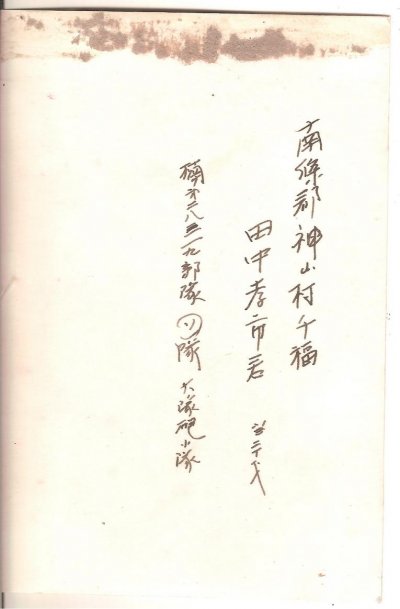 南條郡神山村千福
田中孝市君 当二十才
楠第二八三一九部隊(ツ)隊 大隊砲小隊